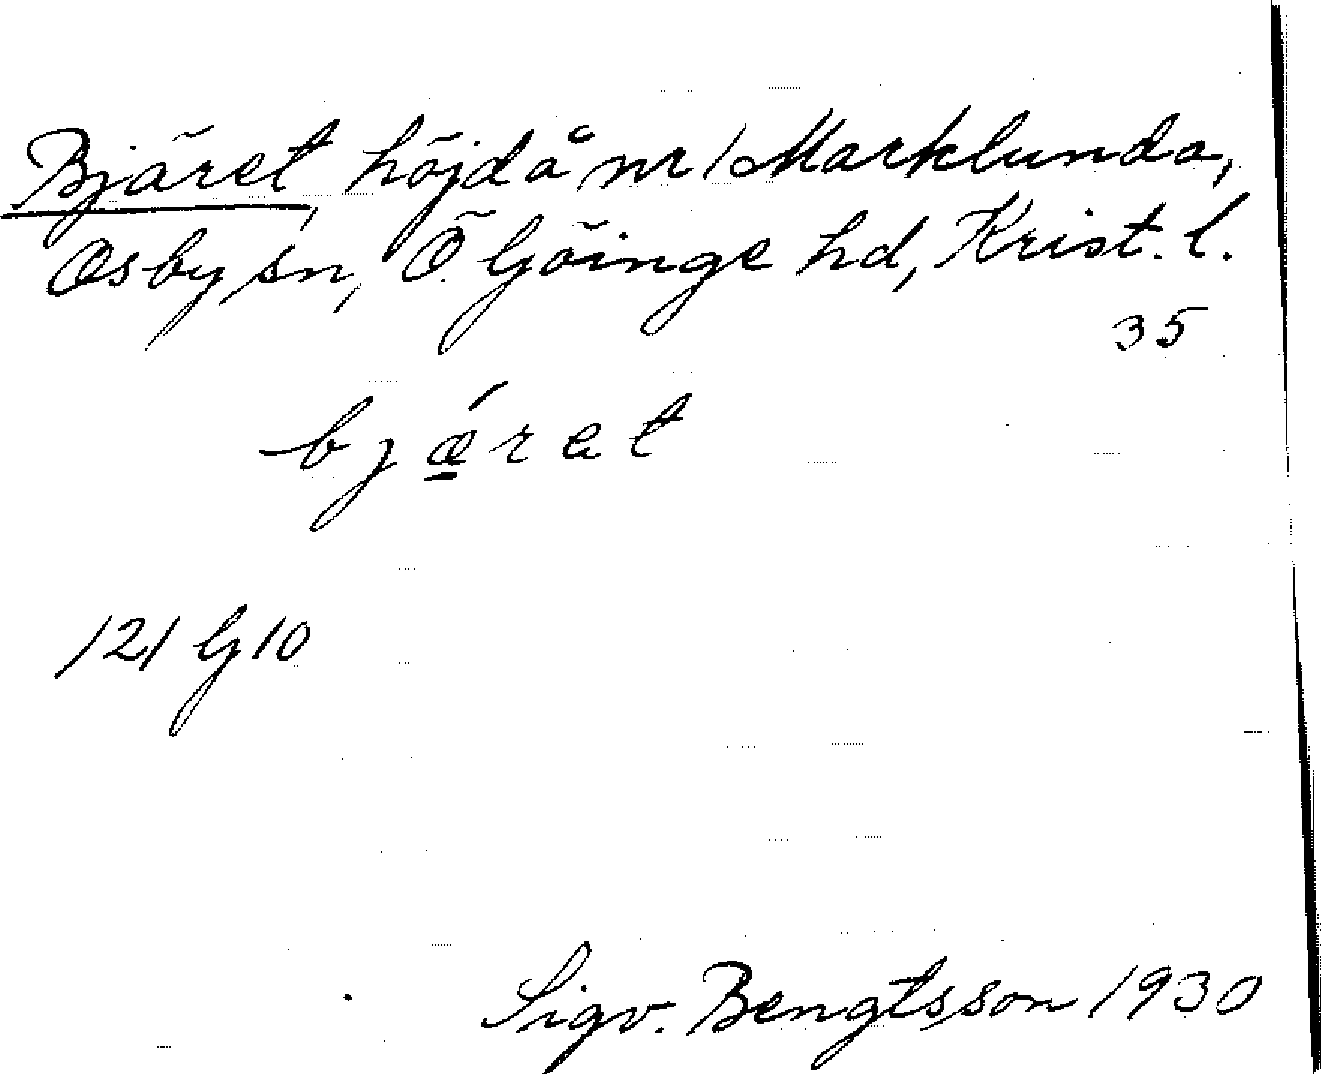 Bjäret, höjd å nr 1 Marklunda,
Osby sn, Ö. Göinge hd, Krist. l.
35
bjǽ̲ret
121 G 10
Sigv. Bengtsson 1930